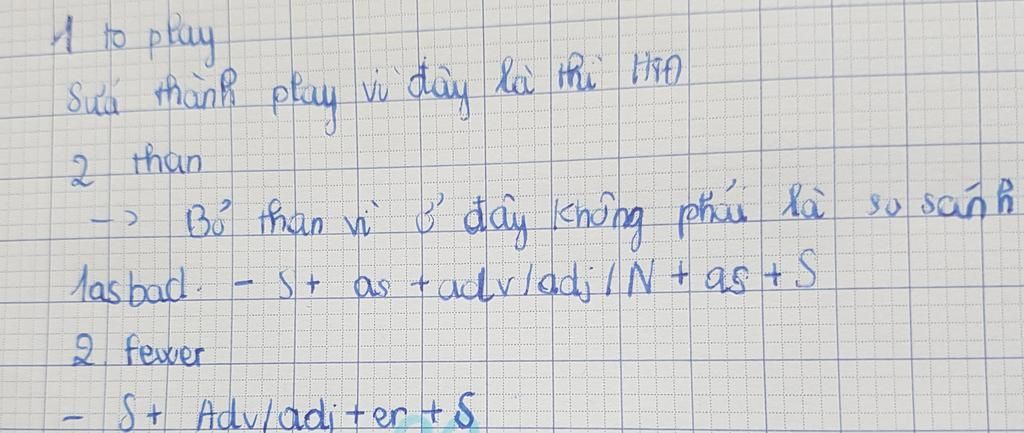 1 to play
Sửa thành play vì đây là thì HTĐ
2 than
-> Bỏ than vì ở đây không phải là so sánh
1 as bad. - S + as + adv/adj/N + as + S
2. fewer
- S + Adv/adj + er + S